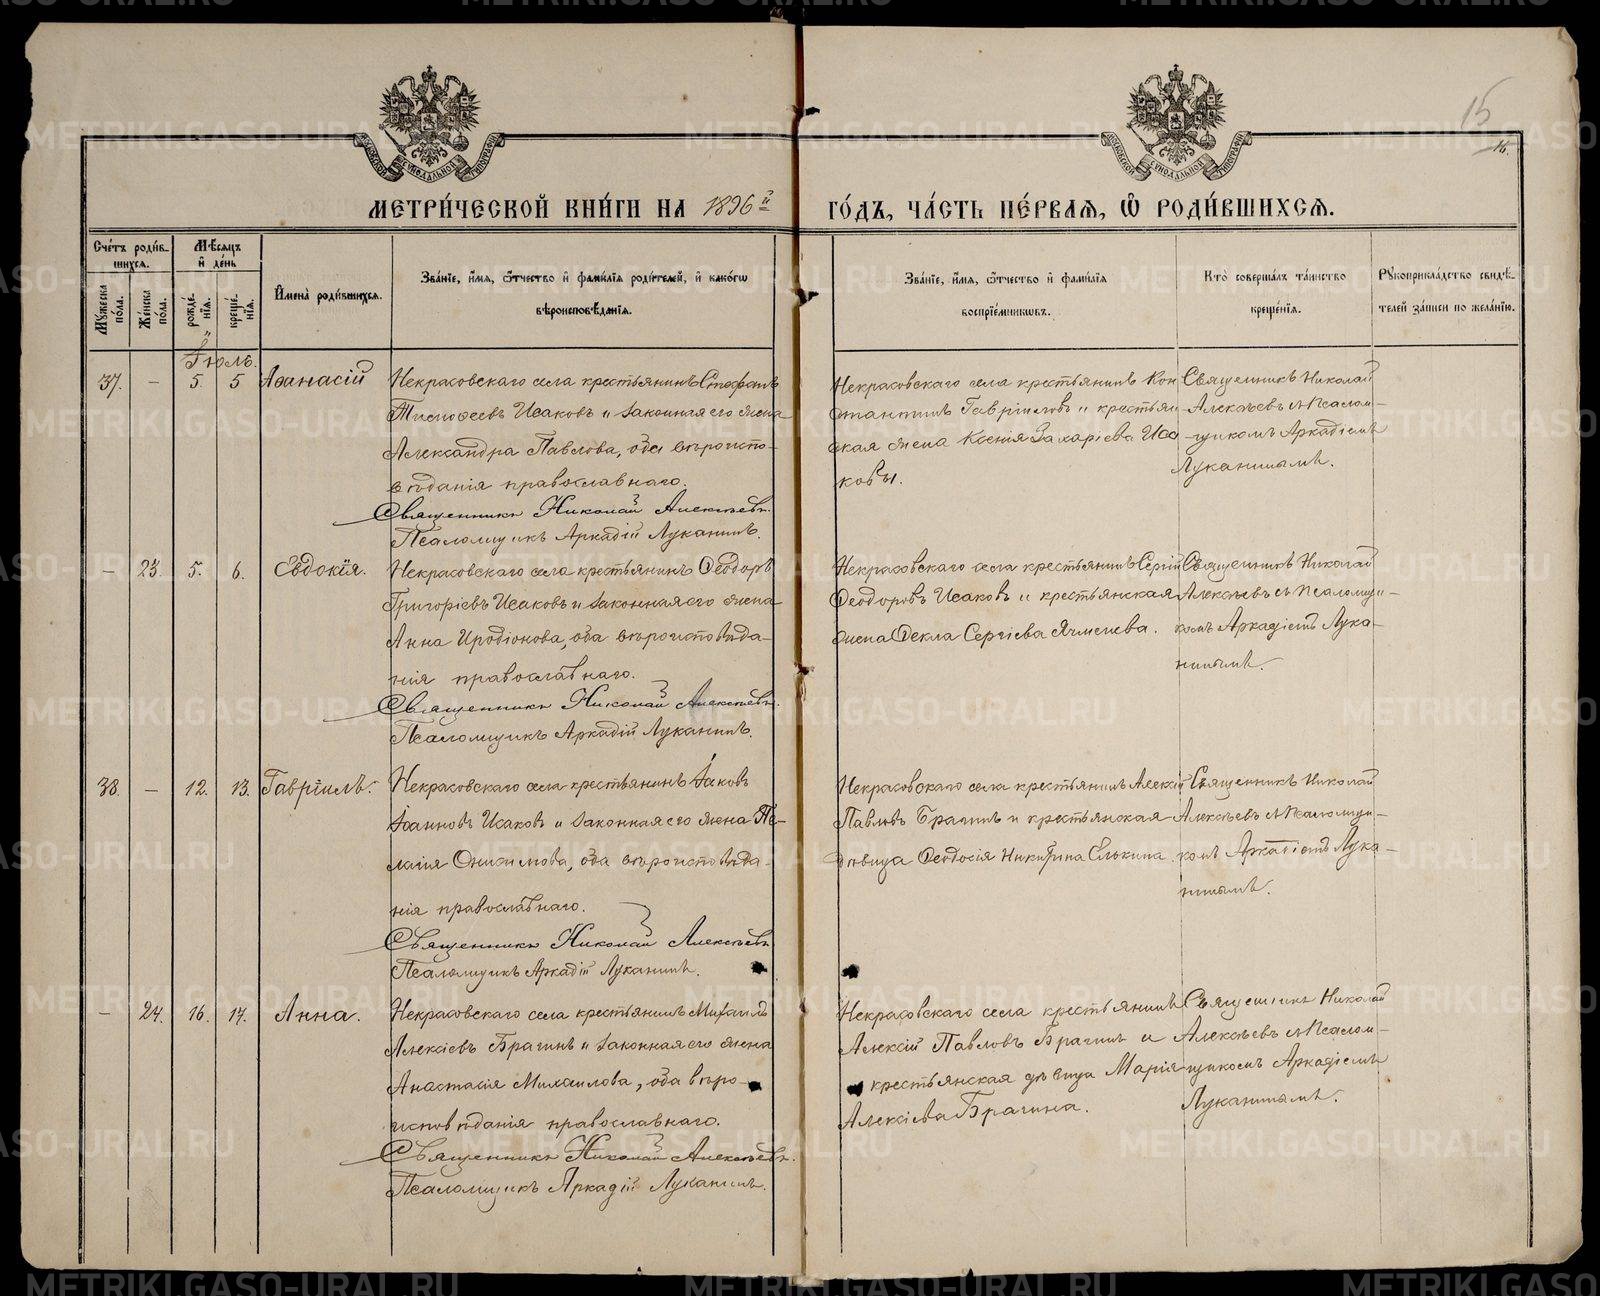 15
16.
МЕТРИ́ЧЕСКОЙ КНИ́ГИ НА 1896й ГО́ДЪ, ЧА́СТЬ ПЕ́РВАѦ, Ѡ҆ РОДИ́ВШИХСѦ.
Сче́тъ роди́в-
шихсѧ.
Мꙋ́жеска по́ла.
Же́нска по́ла.
Мѣ́сѧцъ
и҆ де́нь
рожде́-
нїѧ.
креще́-
нїѧ.
И҆мена̀ роди́вшихсѧ.
Зва́нїе, и҆́мѧ, ѻ҆́тчество и҆ фами́лїѧ роди́телей, и҆ како́гѡ
вѣроисповѣ́данїѧ.
Зва́нїе, и҆́мѧ, ѻ҆́тчество и҆ фами́лїѧ
воспрїе́мникѡвъ.
Кто̀ соверша́лъ та́инство
креще́нїѧ.
Рꙋкоприкла́дство свидѣ́-
телей за́писи по жела́нїю.
Іюль.
37. — 5. 5 Аѳанасій
Некрасовскаго села крестьянинъ Стефанъ
Тимоѳеевъ Исаковъ и законная его жена
Александра Павлова, оба вѣроиспо-
вѣданія православнаго.
Священникъ Николай Алексѣевъ.
Псаломщикъ Аркадій Луканинъ.
Некрасовскаго села крестьянинъ Кон
стантинъ Гавріиловъ и крестьян
ская жена Ксенія Захаріева Иса
ковы.
Священникъ Николай
Алексѣевъ съ Псалом-
щикомъ Аркадіемъ
Луканинымъ.
— 23. 5. 6. Евдокія.
Некрасовскаго села крестьянинъ Ѳеодоръ
Григоріевъ Исаковъ и законная его жена
Анна Иродіонова, оба вѣроисповѣда-
нія православнаго.
Священникъ Николай Алексѣевъ.
Псаломщикъ Аркадій Луканинъ.
Некрасовскаго села крестьянинъ Сергій
Ѳеодоровъ Исаковъ и крестьянская
жена Ѳекла Сергіева Ячменева.
Священникъ Николай
Алексѣевъ съ Псаломщи-
комъ Аркадіемъ Лука-
нинымъ.
38. — 12. 13. Гавріилъ.
Некрасовскаго села крестьянинъ Іаковъ
Іоанновъ Исаковъ и законная его жена Пе-
лагія Онисимова, оба вѣроисповѣда-
нія православнаго.
Священникъ Николай Алексѣевъ
Псаломщикъ Аркадій Луканинъ.
Некрасовскаго села крестьянинъ Алексій
Павловъ Брагинъ и крестьянская
дѣвица Ѳеодосія Никитина
Священникъ Николай
Алексѣевъ съ Псаломщи-
комъ Аркадіемъ Лука-
нинымъ.
— 24. 16. 17. Анна.
Некрасовскаго села крестьянинъ Михаилъ
Алексіевъ Брагинъ и законная его жена
Анастасія Михаилова, оба вѣро-
исповѣданія православнаго.
Священникъ Николай Алексѣевъ.
Псаломщикъ Аркадій Луканинъ.
Некрасовскаго села крестьянинъ
Алексій Павловъ Брагинъ и
крестьянская дѣвица Марія
Алексіева Брагина.
Священникъ Николай
Алексѣевъ съ Псалом-
щикомъ Аркадіемъ
Луканинымъ.
METRIKI.GASO-URAL.RU